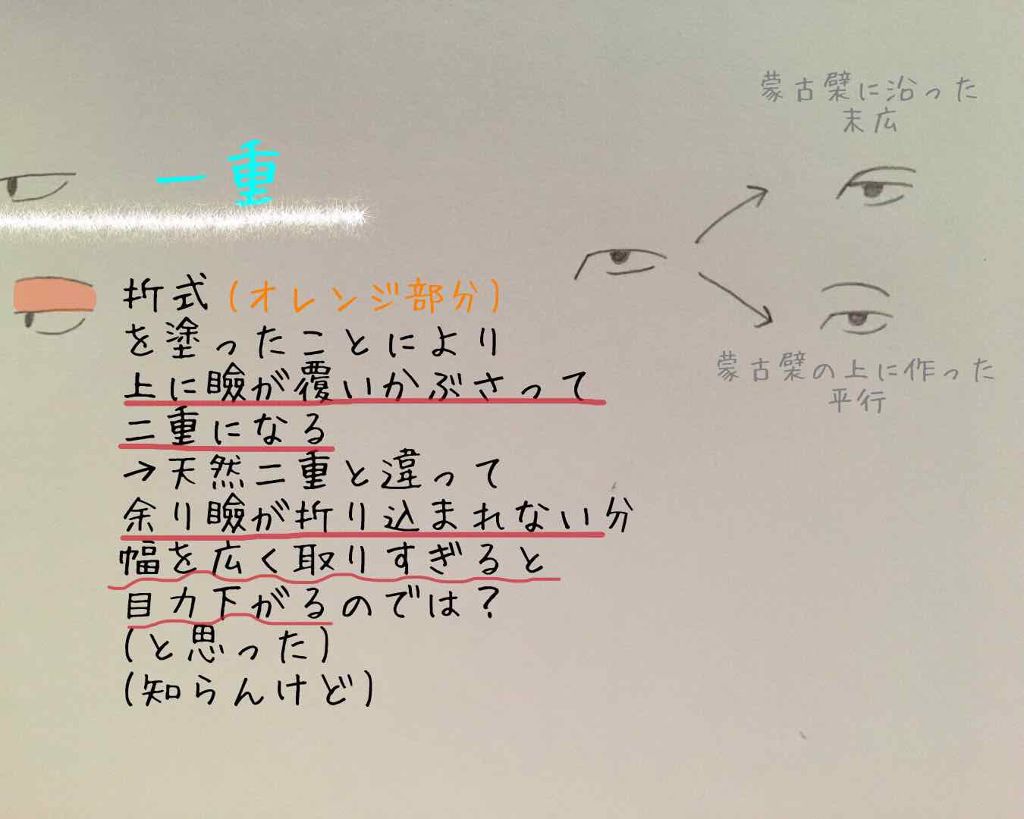 一重
折式(オレンジ部分)
を塗ったことにより
上に瞼が覆いかぶさって
二重になる
→天然二重と違って
余り瞼が折り込まれない分
幅を広く取りすぎると
目力下がるのでは?
(と思った)
(知らんけど)
蒙古襞に沿った
末広
蒙古襞の上に作った
平行